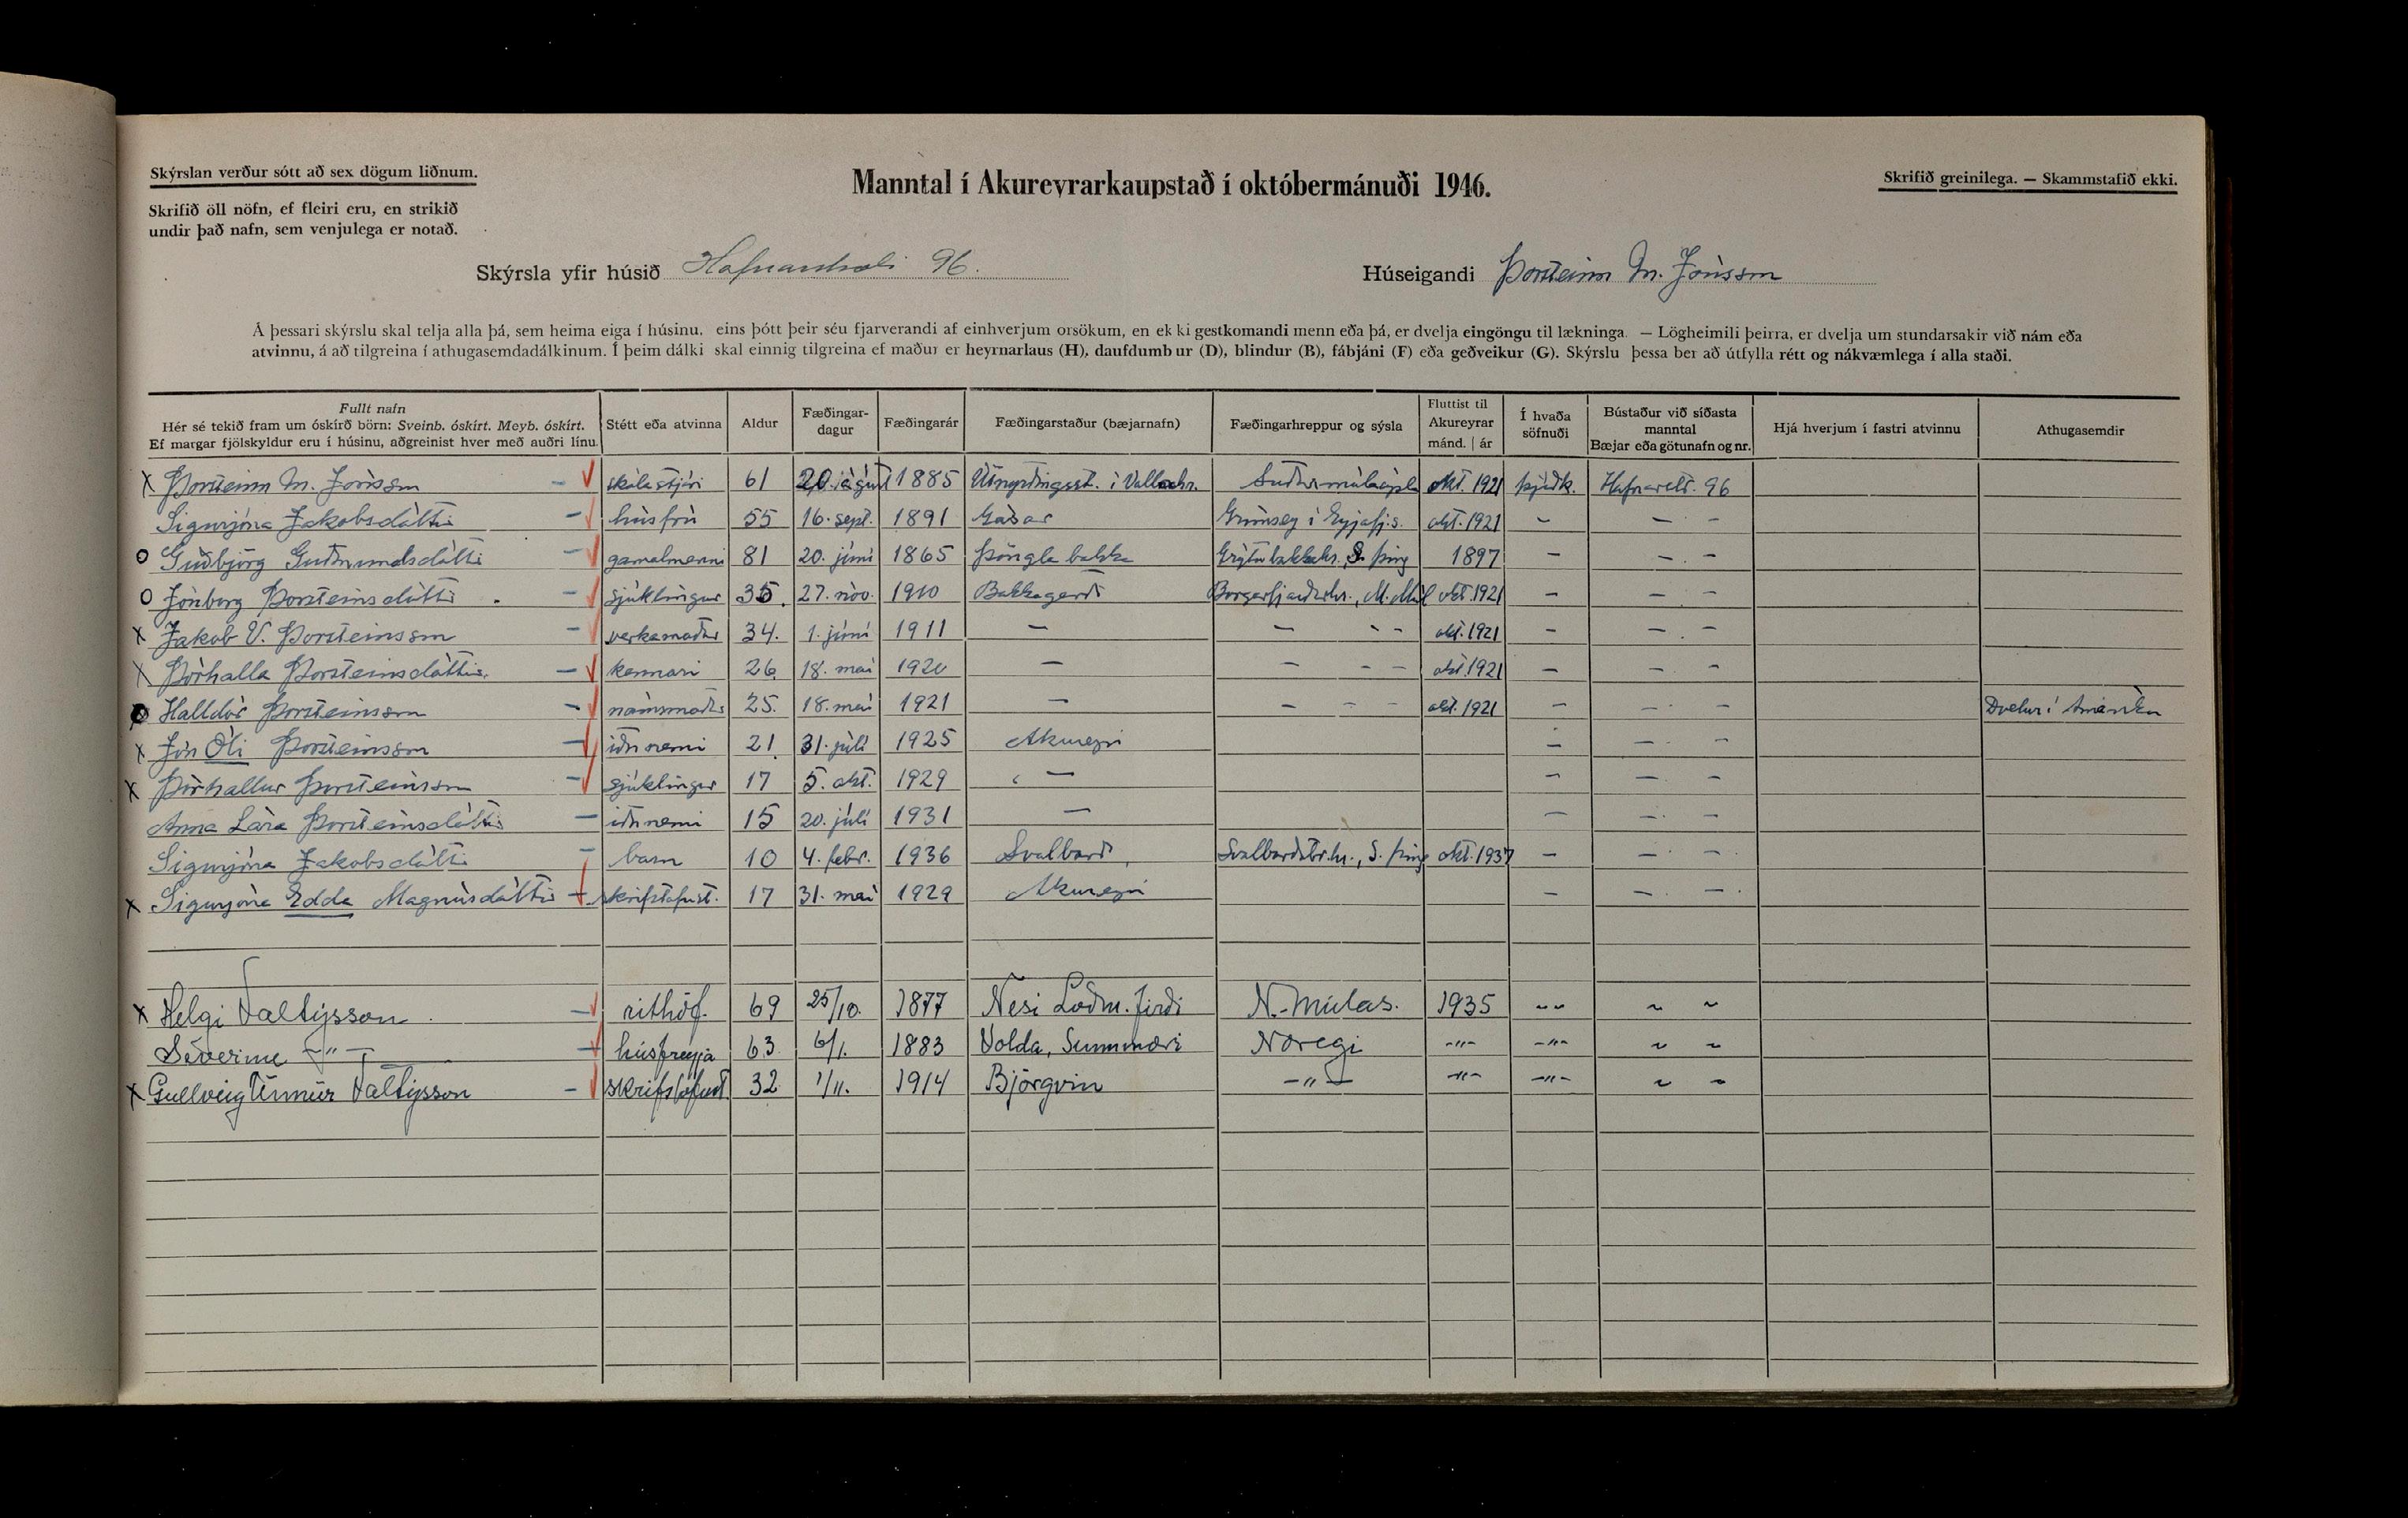 Skýrslan verður sótt að sex dögum liðnum.
Skrifið öll nöfn, ef fleiri eru, en strikið
undir það nafn, sem venjulega er notað.
Manntal í Akureyrarkaupstað í októbermánuði 1946.
Skrifið greinilega. — Skammstafið ekki.
Skýrsla yfir húsið Hafnarstræti 96.
Húseigandi Þorsteinn M. Jónsson
Á þessari skýrslu skal telja alla þá, sem heima eiga í húsinu, eins þótt þeir séu fjarverandi af einhverjum orsökum, en ek ki gestkomandi menn eða þá, er dvelja eingöngu til lækninga. — Lögheimili þeirra, er dvelja um stundarsakir við nám eða
atvinnu, á að tilgreina í athugasemdadálkinum. Í þeim dálki skal einnig tilgreina ef maður er heyrnarlaus (H), daufdumb ur (D), blindur (B), fábjáni (F) eða geðveikur (G). Skýrslu þessa ber að útfylla rétt og nákvæmlega í alla staði.
Fullt nafn
Hér sé tekið fram um óskírð börn: Sveinb. óskírt. Meyb. óskírt.
Ef margar fjölskyldur eru í húsinu, aðgreinist hver með auðri línu.
Stétt eða atvinna
Aldur
Fæðingar-
dagur
Fæðingarár
Fæðingarstaður (bæjarnafn)
Fæðingarhreppur og sýsla
Fluttist til
Akureyrar
mánd. | ár
Í hvaða
söfnuði
Bústaður við síðasta
manntal
Bæjar eða götunafn og nr.
Hjá hverjum í fastri atvinnu
Athugasemdir
x Þorsteinn M. Jónsson – skólastjóri 61 20. ágúst 1885 Útnyrðingsst. í Vallahr. Suðurmúlasýsla okt. 1921 þjóðk. Hafnarstr. 96
Sigurjóna Jakobsdóttir – húsfrú 55 16. sept. 1891 Básar Grímsey í Eyjafj.s. okt. 1921 – – –
o Guðbjörg Guðmundsdóttir – gamalmenni 81 20. júní 1865 Þönglabakka Grýtubakkahr., S. Þing 1897 – – –
o Jónborg Þorsteinsdóttir – sjúklingur 35. 27. nóv. 1910 Bakkagerði Borgarfjarðarhr., N. Múl okt. 1921 – – –
x Jakob V. Þorsteinsson – verkamaður 34. 1. júní 1911 – – – – okt. 1921 – – –
x Þórhalla Þorsteinsdóttir – kennari 26 18. maí 1920 – – – – okt. 1921 – – –
o Halldór Þorsteinsson – námsmaður 25. 18. maí 1921 – – – – okt. 1921 – – – Dvelur í Ameríku
x Jón Óli Þorsteinsson – iðnnemi 21 31. júlí 1925 Akureyri – – –
x Þórhallur Þorsteinsson – sjúklingur 17 5. okt. 1929 – – – –
Anna Lára Þorsteinsdóttir – iðnnemi 15 20. júlí 1931 – – – –
Sigurjóna Jakobsdóttir – barn 10 4. febr. 1936 Svalbarð Svalbarðsstr.hr., S. Þing okt. 1937 – – –
x Sigurjóna Edda Magnúsdóttir – skrifstofust. 17 31. maí 1929 Akureyri – – –
x Helgi Valtýsson – rithöf. 69 25/10. 1877 Nesi Loðm. firði N.-Múlas. 1935 ~~ ~ ~
Severine –"– – húsfreyja 63 6/1. 1883 Volda, Sunnmæri Noregi –"– –"– ~ ~
x Gullveig Unnur Valtýsson – skrifstofust. 32 1/11. 1914 Björgvin –"– –"– –"– ~ ~